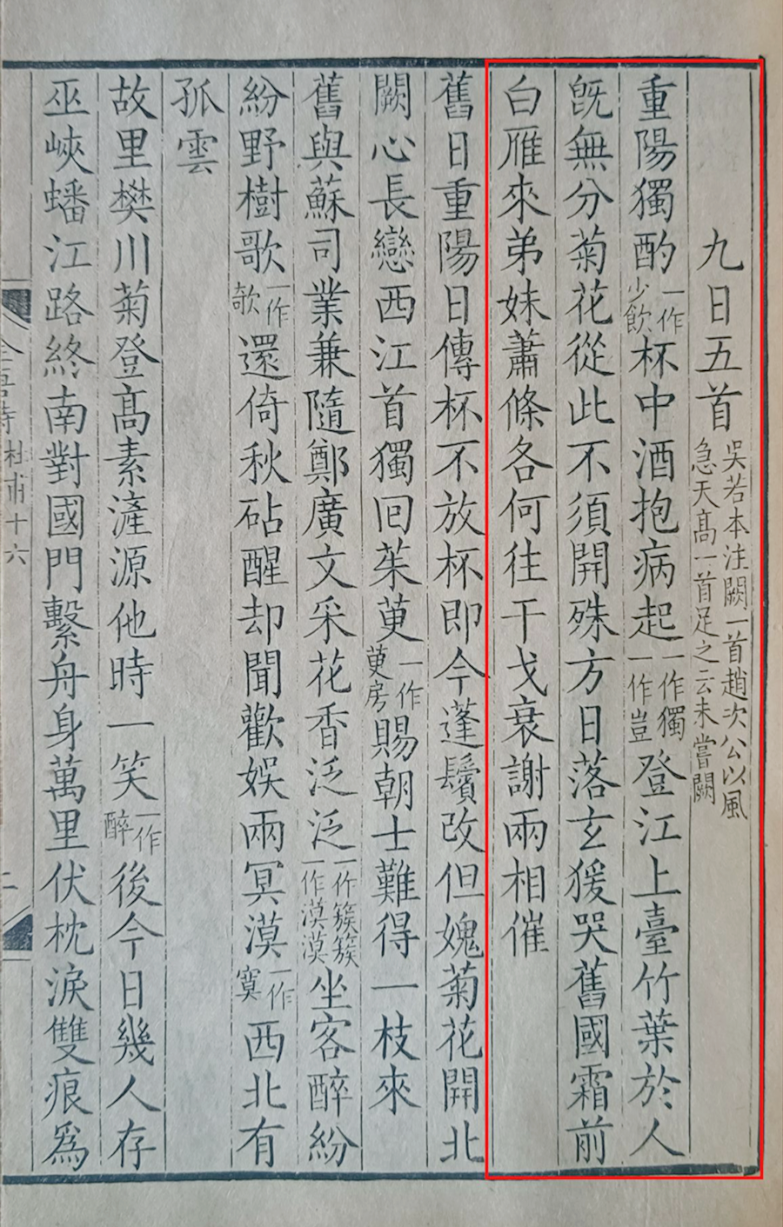 九日五首吳若本注闕一首趙次公以風急天髙一首足之云未嘗闕
重陽獨酌一作少飲杯中酒抱病起一作獨一作豈登江上臺竹葉於人
既無分菊花從此不須開殊方日落玄猨哭舊國霜前
白雁來弟妹蕭條各何往干戈衰謝兩相催
舊日重陽日傳杯不放杯即今蓬鬢改但媿菊花開北
闕心長戀西江首獨回茱萸一作萸房賜朝士難得一枝來
舊與蘇司業兼隨鄭廣文采花香泛泛一作簇簇一作漠漠坐客醉紛
紛野樹歌一作欹還倚秋砧醒却聞歡娛兩冥漠一作寞西北有
孤雲
故里樊川菊登髙素滻源他時一笑一作醉後今日幾人存
巫峽蟠江路終南對國門繫舟身萬里伏枕淚雙痕爲
杜甫十六